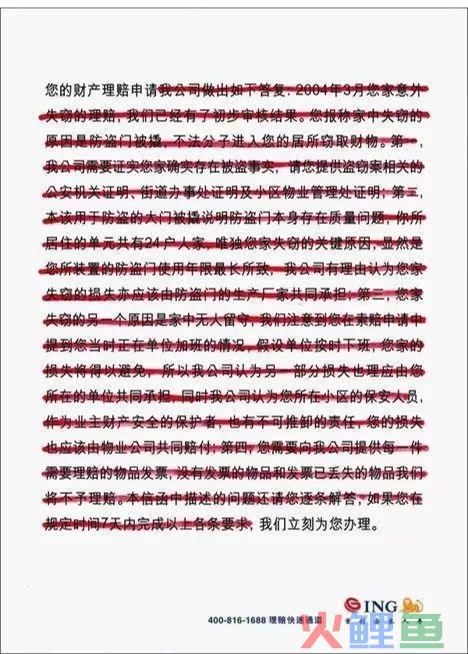 您的财产理赔申请我公司做出如下答复：2004年3月您家意外
失窃的理赔，我们已经有了初步审核结果。您报称家中失窃的
原因是防盗门被撬，不法分子进入您的居所窃取财物。第一，
我公司需要证实您家确实存在被盗事实，请您提供盗窃案相关的
公安机关证明、街道办事处证明及小区物业管理处证明；第二，
本该用于防盗的大门被撬说明防盗门本身存在质量问题，你所
居住的单元共有24户人家，唯独您家失窃的关键原因，显然是
您所装置的防盗门使用年限最长所致，我公司有理由认为您家
失窃的损失亦应该由防盗门的生产厂家共同承担；第三，您家
失窃的另一个原因是家中无人留守，我们注意到您在索赔申请中
提到您当时正在单位加班的情况，假设单位按时下班，您家的
损失将得以避免，所以我公司认为另一部分损失也理应由您
所在的单位共同承担，同时我公司认为您所在小区的保安人员，
作为业主财产安全的保护者，也有不可推卸的责任，您的损失
也应该由物业公司共同赔付；第四，您需要向我公司提供每一件
需要理赔的物品发票，没有发票的物品和发票已丢失的物品我们
将不予理赔。本信函中描述的问题还请您逐条解答，如果您在
规定时间7天内完成以上各条要求，我们立刻为您办理。
ING
400-816-1688 理赔快速通道
火鲤鱼